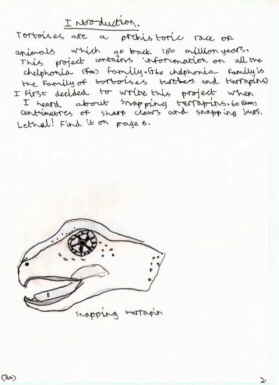 Introduction.
Tortoises are a prehistoric race of
animals which go back 180 million years.
This project contains information on all the
chelphonia family. (The chelphonia family is
the family of tortoises turtles and terrapins)
I first decided to write this project when
I heard about snapping terrapins.
centimetres of sharp claws and snapping jaws.
Lethal! Find it on page 6.
snapping terrapin
2